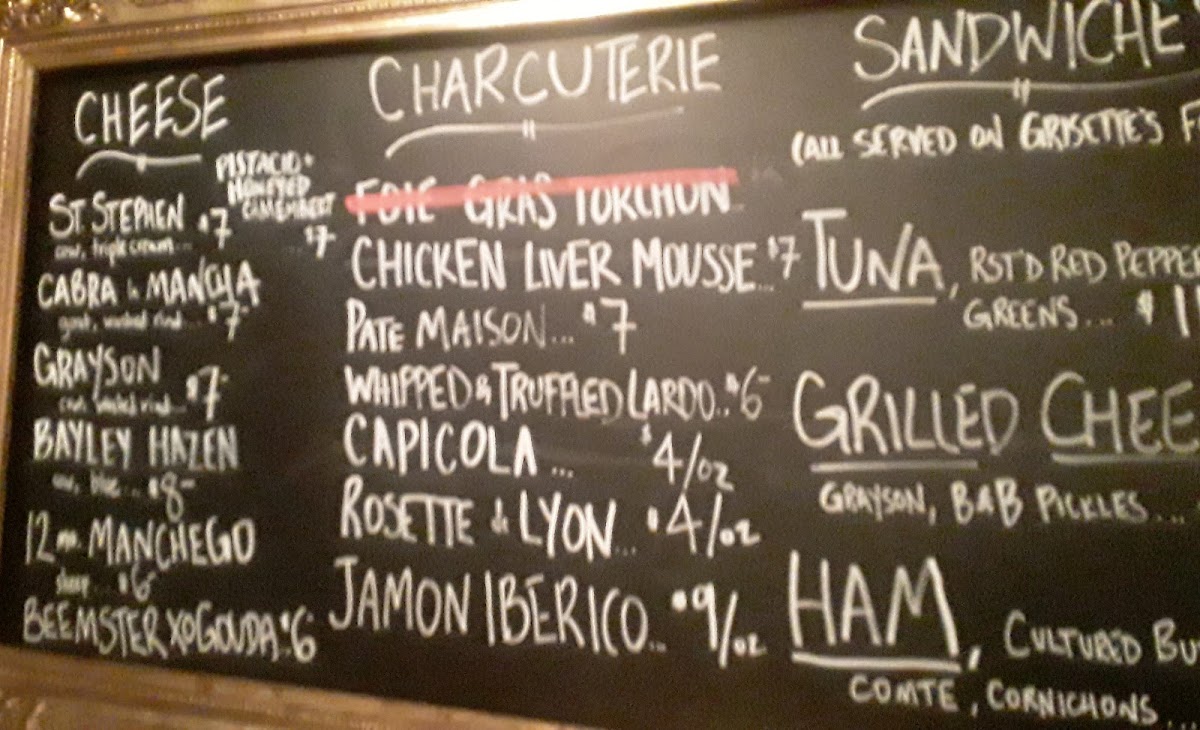 CHEESE
PISTACIO +
HONEYED
CAMEMBERT
... $7
ST. STEPHEN $7
cow, triple cream...
CABRA la MANCHA
goat, washed rind... $7
GRAYSON
cow, washed rind... $7
BAYLEY HAZEN
cow, blue... $8
12 mo. MANCHEGO
sheep... $6
BEEMSTER XO GOUDA $6
CHARCUTERIE
FOIE GRAS TORCHON
CHICKEN LIVER MOUSSE... $7
PATE MAISON... $7
WHIPPED & TRUFFLED LARDO.. $6
CAPICOLA ... $4/oz
ROSETTE de LYON... $4/oz
JAMON IBERICO... $9/oz
SANDWICHE
(ALL SERVED ON GRISETTE'S F
TUNA, RST'D RED PEPPE
GREENS... $1
GRILLED CHEE
GRAYSON, B&B PICKLES...
HAM, CULTURED BU
COMTE, CORNICHONS...